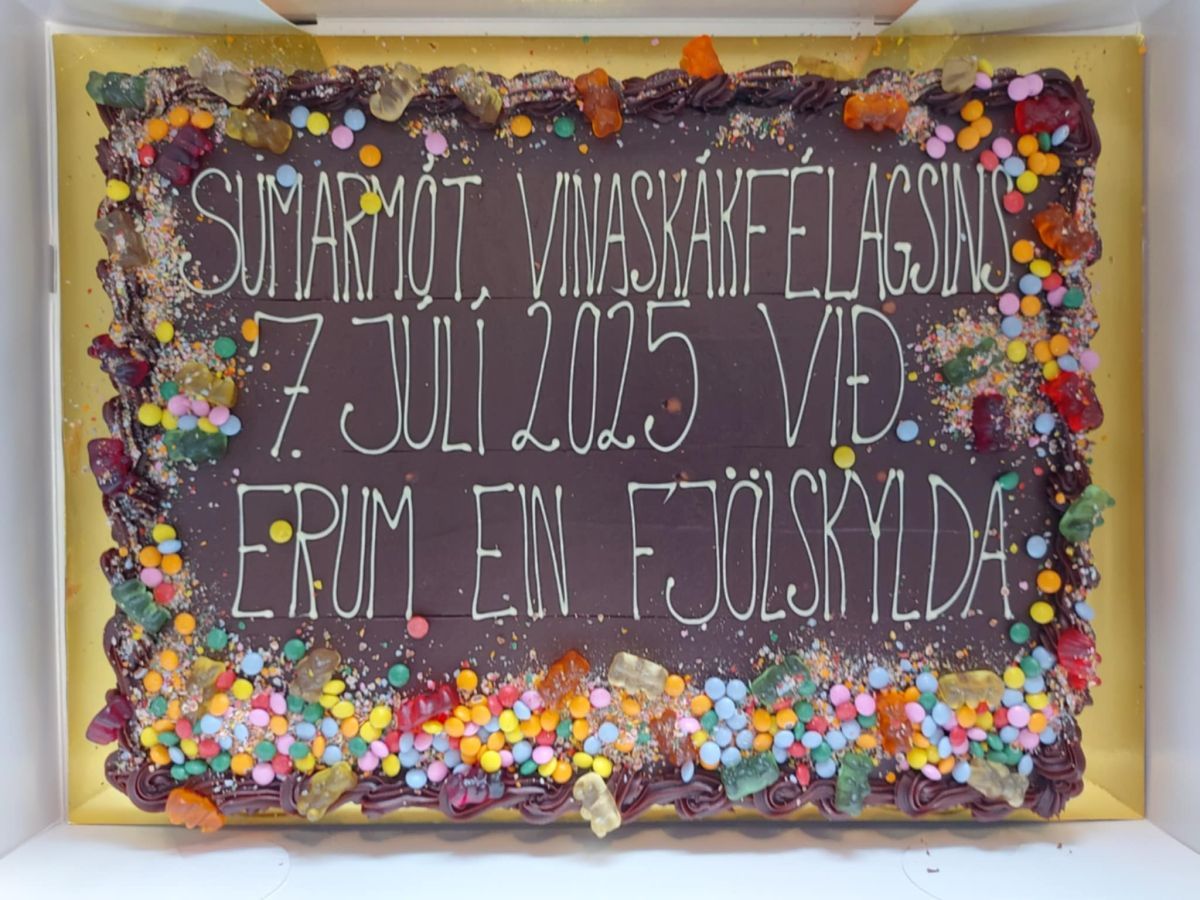 SUMARMÓT, VINASKÁKFÉLAGSINS
7. JÚLÍ 2025 VIÐ
ERUM EIN FJÖLSKYLDA